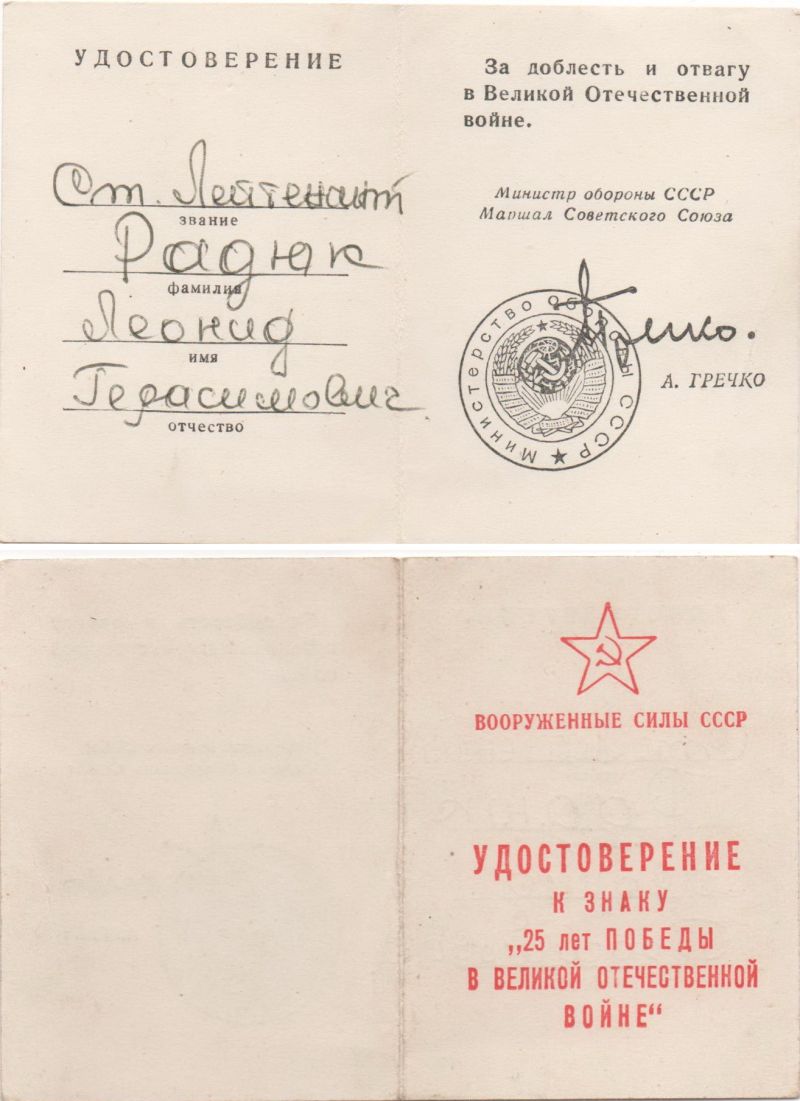 УДОСТОВЕРЕНИЕ
Ст. Лейтенант
звание
Радюк
фамилия
Леонид
имя
Герасимович
отчество
За доблесть и отвагу
в Великой Отечественной
войне.
Министр обороны СССР
Маршал Советского Союза
Министерство Обороны СССР
Гречко.
А. ГРЕЧКО
ВООРУЖЕННЫЕ СИЛЫ СССР
УДОСТОВЕРЕНИЕ
К ЗНАКУ
„25 лет ПОБЕДЫ
В ВЕЛИКОЙ ОТЕЧЕСТВЕННОЙ
ВОЙНЕ“